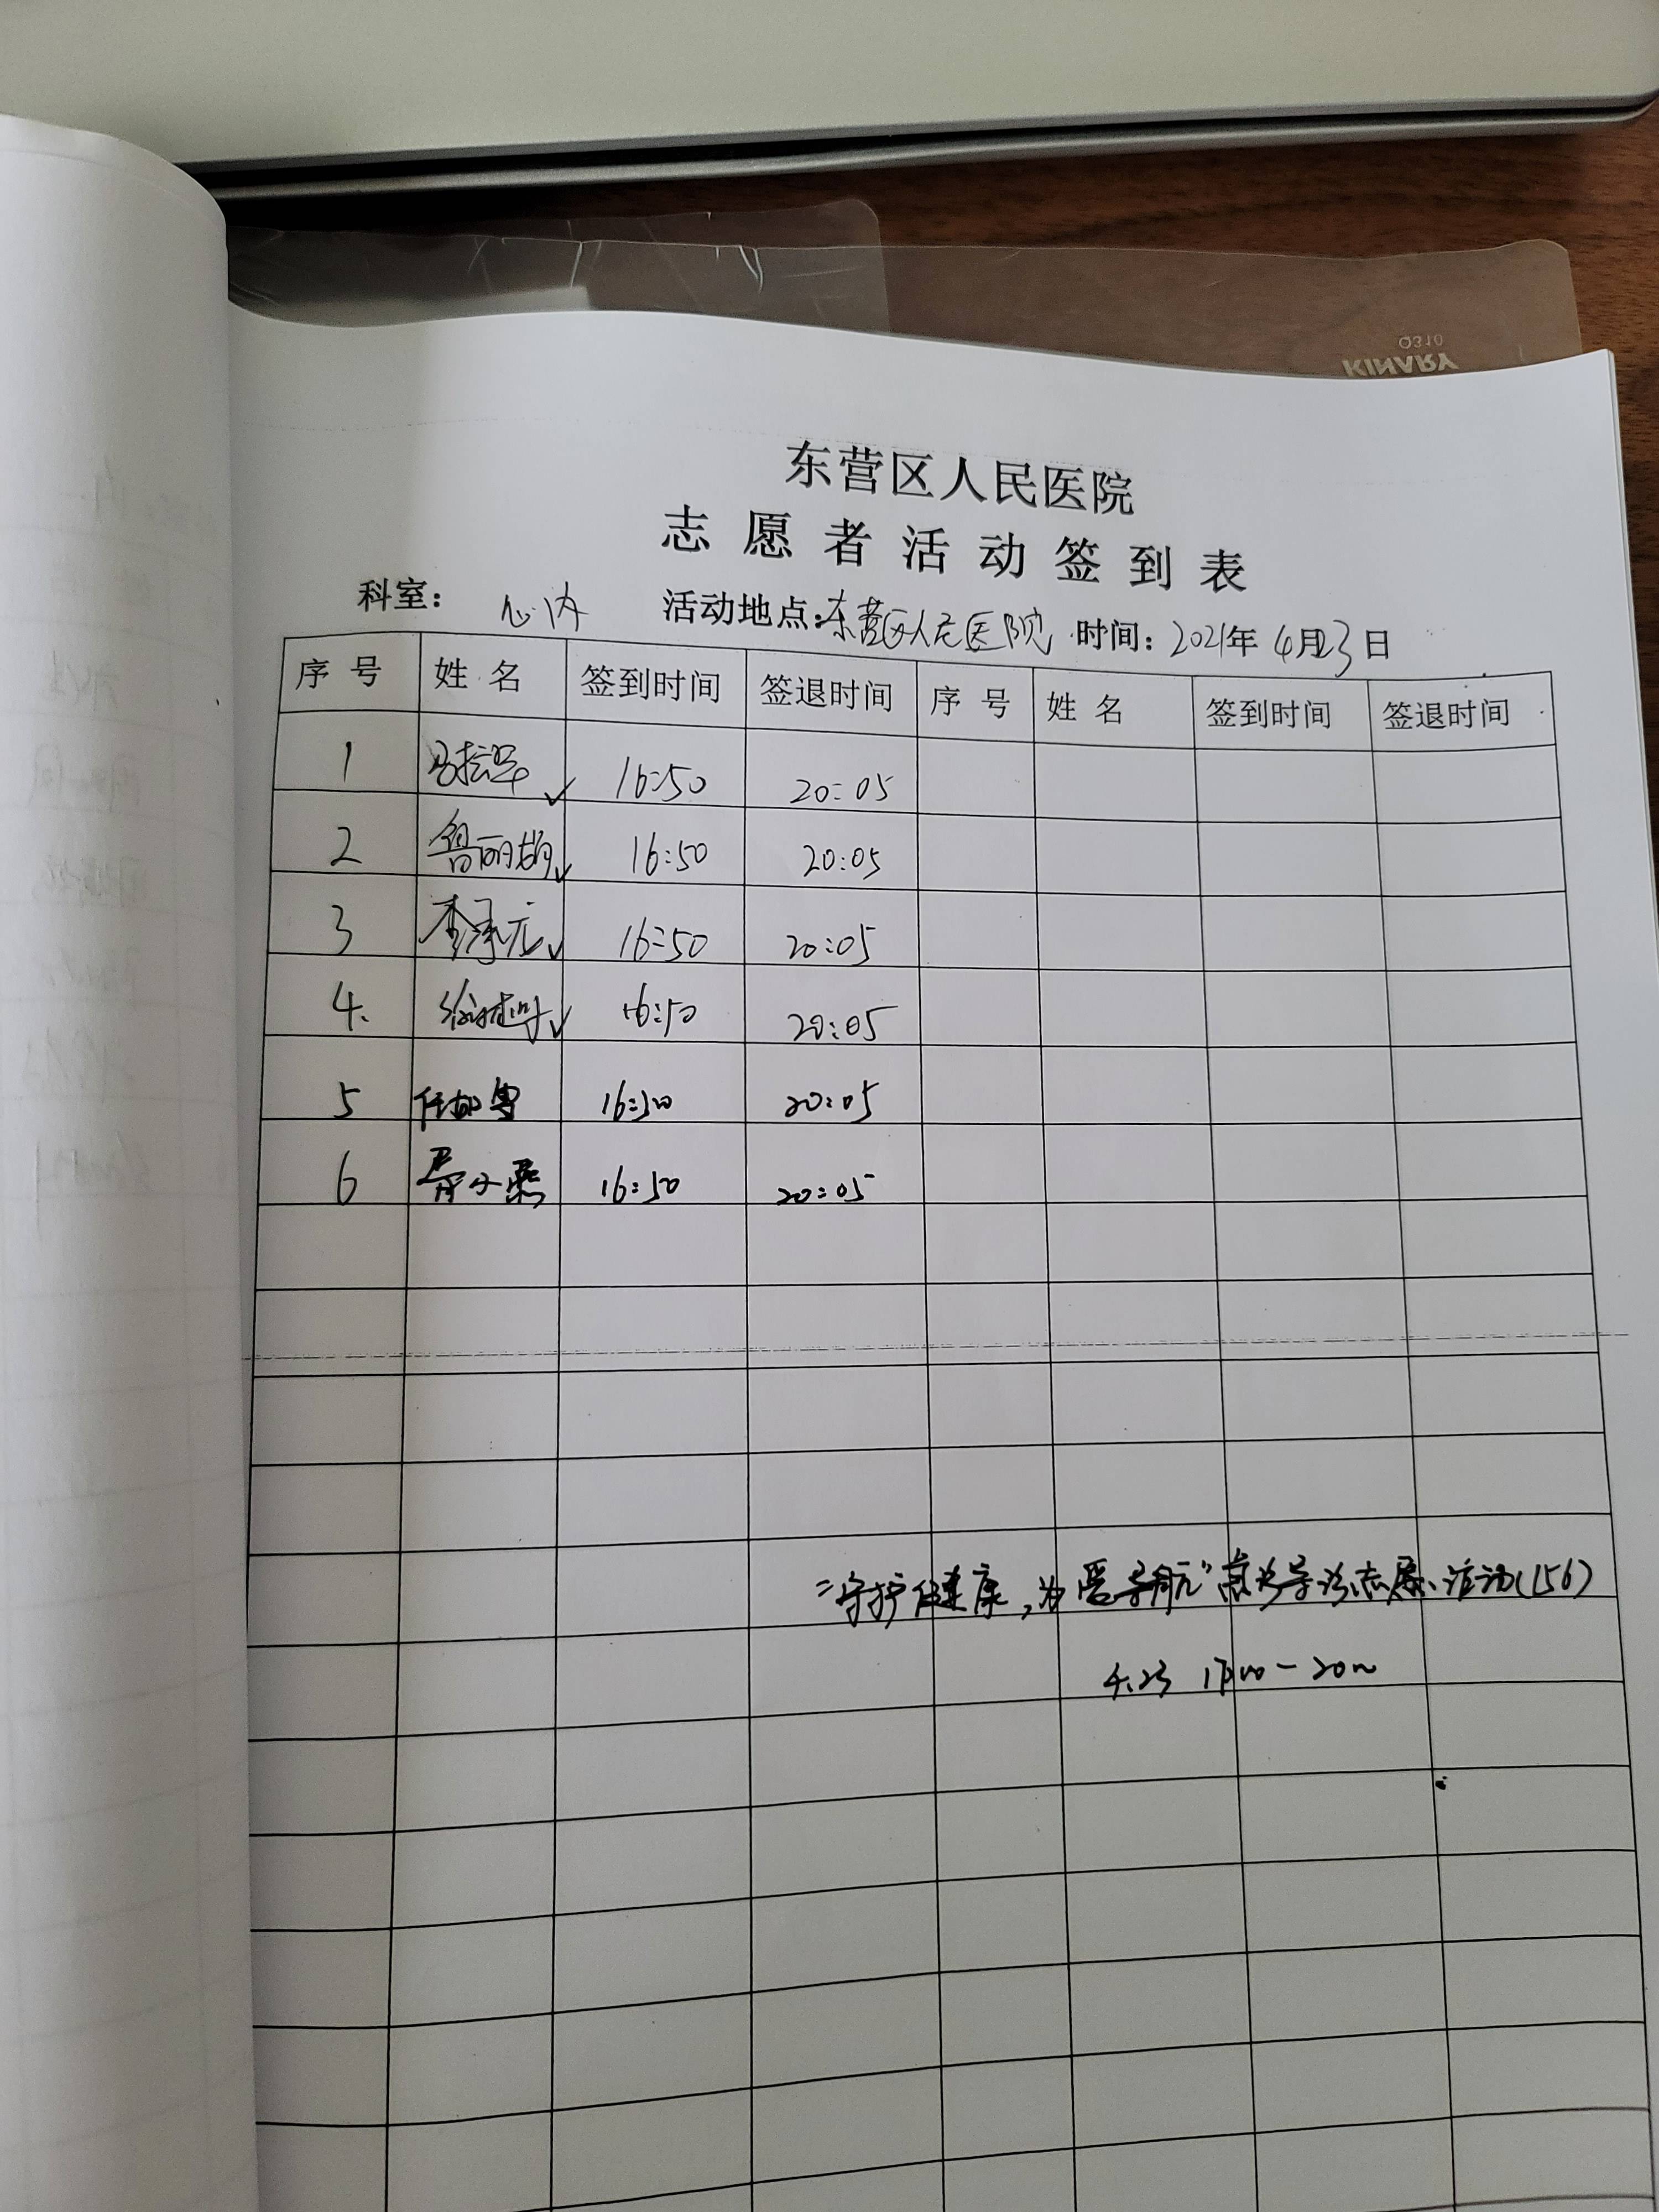 KINARY
O310
东营区人民医院
志愿者活动签到表
科室: 心内 活动地点:东营区人民医院 时间: 2021年4月23日
序号 姓名 签到时间 签退时间 序号 姓名 签到时间 签退时间
1 16:50 20:05
2 鲁丽娟 16:50 20:05
3 李承元 16:50 20:05
4. 16:50 20:05
5 16:50 20:05
6 16:50 20:05
"守护健康,为爱导航" 导诊志愿活动(156)
4.23 17:00-20:00